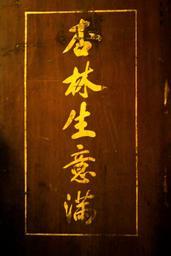 杏林生意滿